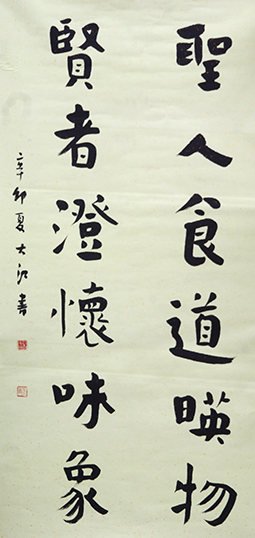 聖人食道暎物
賢者澄懷味象
辛卯夏大江書